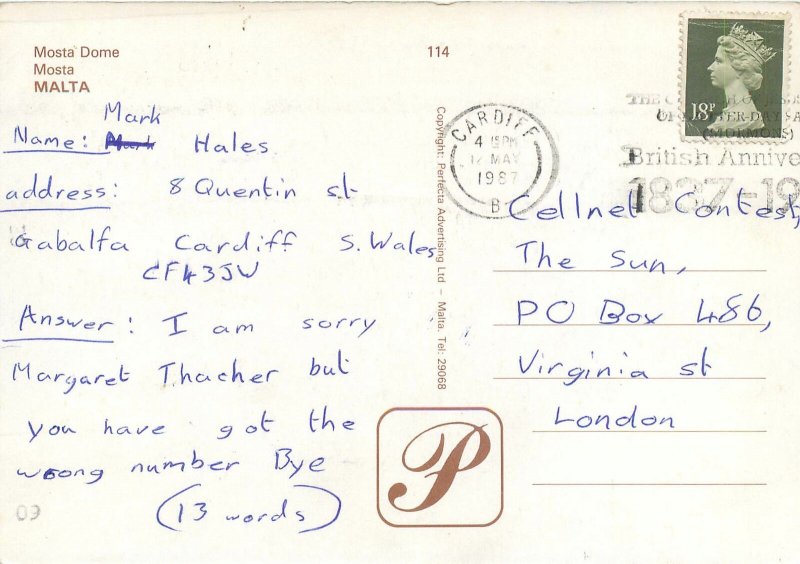 Mosta Dome
Mosta
MALTA
114
Mark
Name: Mark Hales
address: 8 Quentin st
Gabalfa Cardiff S. Wales
CF43JW
Answer: I am sorry
Margaret Thacher but
you have got the
wrong number Bye
(13 words)
03
Copyright: Perfecta Advertising Ltd – Malta. Tel: 29068
P
18P
CARDIFF
4 PM
12 MAY
1987
B
THE
OF
(MORMONS)
British Annive
1837-19
Cellnet Contest,
The Sun,
PO Box 486,
Virginia st
London